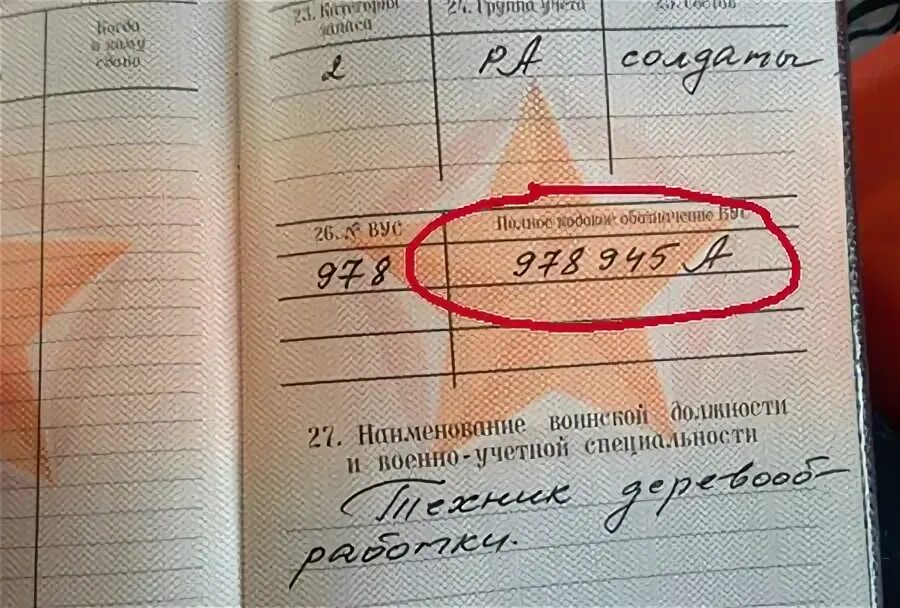 Когда
и кому
сдано
23. Категория
запаса
24. Группа учета
25. Состав
2
РА
солдаты
26. № ВУС
Полное кодовое обозначение ВУС
978
978 945 А
27. Наименование воинской должности
и военно-учетной специальности
Техник деревооб-
работки.